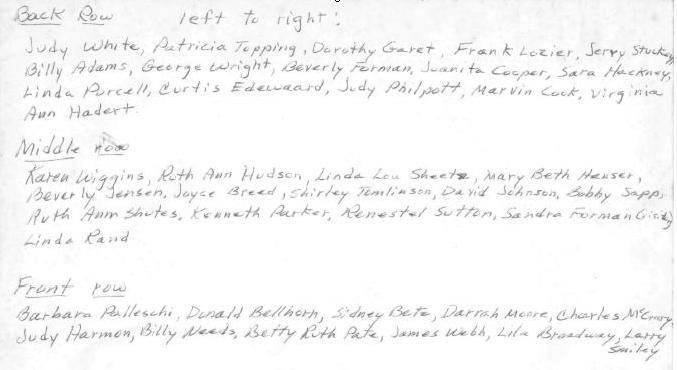 Back Row left to right:
Judy White, Patricia Topping, Dorothy Garet, Frank Lozier, Jerry Stuckey
Billy Adams, George Wright, Beverly Forman, Juanita Cooper, Sara Hackney,
Linda Purcell, Curtis Edewaard, Judy Philpott, Marvin Cook, Virginia
Ann Hadert.
Middle row
Karen Wiggins, Ruth Ann Hudson, Linda Lou Sheetz, Mary Beth Hauser,
Beverly Jensen, Joyce Breed, Shirley Tomlinson, David Johnson, Bobby Sapp,
Ruth Ann Shutes, Kenneth Parker, Renestel Sutton, Sandra Forman
Linda Rand
Front row
Barbara Palleschi, Donald Bellhorn, Sidney Betz, Darrah Moore, Charles McCrary,
Judy Harmon, Billy Needs, Betty Ruth Pate, James Webb, Lila Broadway, Larry
Smiley